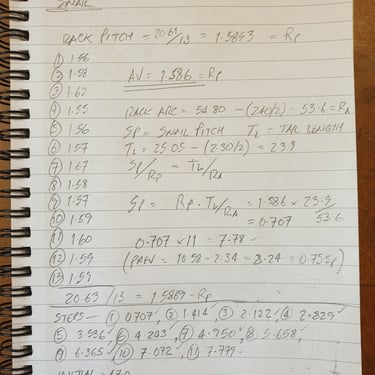 SNAIL
RACK PITCH = 20.61/13 = 1.5853 = Rp
① 1.56
② 1.58 AV = 1.586 = Rp
③ 1.62
④ 1.55 RACK ARC = 54.80 - (2.40/2) - 53.6 = RA
⑤ 1.56 Sp = SNAIL PITCH TL = TAIL LENGTH
⑥ 1.57 TL = 25.05 - (2.30/2) = 23.9
⑦ 1.67 Sp/Rp = TL/RA
⑧ 1.58
⑨ 1.57 Sp = Rp . TL/RA = 1.586 x 23.9/53.6
⑩ 1.59 = 0.707
⑪ 1.60 0.707 x 11 = 7.78 ✓
⑫ 1.59 (PREV = 10.58 - 2.34 - 8.24 = 0.75 Sp)
⑬ 1.59
20.63/13 = 1.5869 - Rp
STEPS — ① 0.707 ② 1.414 ③ 2.122 ④ 2.829
⑤ 3.536 ⑥ 4.243 ⑦ 4.950 ⑧ 5.658
⑨ 6.365 ⑩ 7.072 ⑪ 7.779